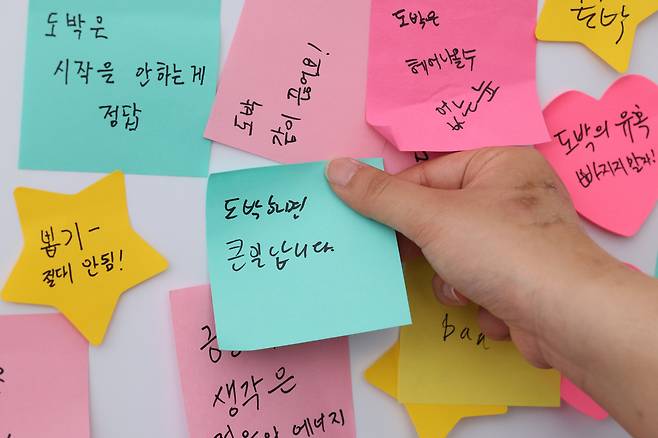 도박은
시작을 안하는게
정답
도박
위험해!
도박은
헤어나올수
없는 늪
도박
도박의 유혹
빠지지말자!
뽑기-
절대 안됨!
도박하면
큰일납니다.
생각은
bad